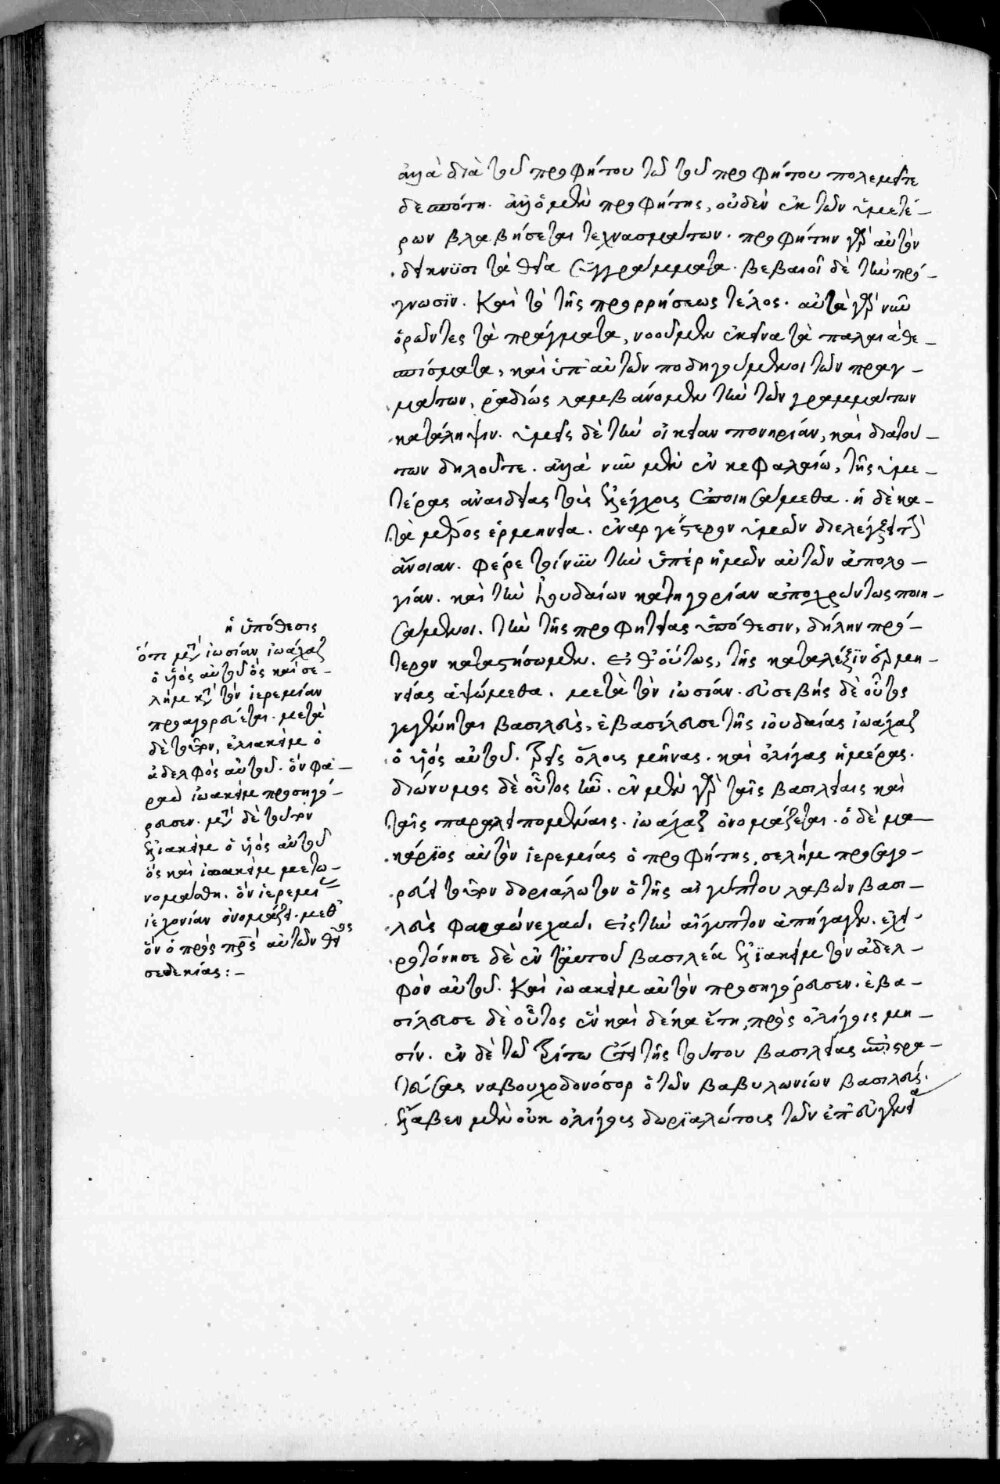 ἀλλὰ διὰ τοῦ προφήτου τῶ τοῦ προφήτου πολεμεῖτε
δεσπότη. ἀλλ' ὁ μὲν προφήτης, οὐδὲν ἐκ τῶν ὑμετέ-
ρων βλαβήσεται τεχνασμάτων. προφήτην γὰρ αὐτὸν
δεικνῦσι τὰ θεῖα συγγράμματα. βεβαιοῖ δὲ τὴν πρό-
γνωσιν. καὶ τὸ τῆς προρρήσεως τέλος. αὐτὰ γὰρ νῦν
ὁρῶντες τὰ πράγματα, νοοῦμεν ἐκεῖνα τὰ παλαιὰ θε-
σπίσματα, καὶ ὑπ' αὐτῶν ποδηγούμενοι τῶν πραγ-
μάτων, ῥαδίως λαμβάνομεν τὴν τῶν γραμμάτων
κατάληψιν. ὑμεῖς δὲ τὴν οἰκείαν πονηρίαν, καὶ διὰ τού-
των δηλοῦτε. ἀλλὰ νῦν μὲν ἐν κεφαλαίω, τῆς ὑμε-
τέρας ἀναιδείας τοὺς ἐλέγχους ἐποιησάμεθα. ἡ δὲ κα-
τὰ μέρος ἑρμηνεία. ἐναργέστερον ὑμῶν διελέγξει τὴν
ἄνοιαν. φέρε τοίνυν τὴν ὑπὲρ ἡμῶν αὐτῶν ἀπολο-
γίαν. καὶ τὴν ἰουδαίων κατηγορίαν ἀποχρώντως ποιη-
σάμενοι. τὴν τῆς προφητείας ὑπόθεσιν, δήλην πρό-
τερον καταστήσωμεν. εἶθ' οὕτως, τῆς κατὰ λέξιν ἑρμη-
νείας ἁψώμεθα. μετὰ τὸν ἰωσίαν. εὐσεβὴς δὲ οὗτος
γεγένηται βασιλεὺς, ἐβασίλευσε τῆς ἰουδαίας ἰωάχαζ
ὁ υἱὸς αὐτοῦ. τρεῖς ὅλους μῆνας. καὶ ὀλίγας ἡμέρας.
διώνυμος δὲ οὗτος ἦν. ἐν μὲν γὰρ ταῖς βασιλείαις καὶ
ταῖς παραλειπομέναις. ἰωάχαζ ὀνομάζεται. ὁ δὲ μα-
κάριος αὐτὸν ἱερεμίας ὁ προφήτης, σελήμ προσαγο-
ρεύει τοῦτον δοριάλωτον ὁ τῆς αἰγύπτου λαβὼν βασι-
λεὺς φαραὼ νεχαὼ, εἰς τὴν αἴγυπτον ἀπήγαγεν. ἐχει-
ροτόνησε δὲ ἀντ' αὐτοῦ βασιλέα ἐλιακεὶμ τὸν ἀδελ-
φὸν αὐτοῦ. καὶ ἰωακεὶμ αὐτὸν προσηγόρευσεν. ἐβα-
σίλευσε δὲ οὗτος ἓν καὶ δέκα ἔτη, πρὸς ὀλίγοις μη-
σίν. ἐν δὲ τῶ τρίτω ἔτει τῆς τούτου βασιλείας ἐπιστρα-
τεύσας ναβουχοδονόσορ ὁ τῶν βαβυλωνίων βασιλεύς.
ἔλαβεν μὲν οὐκ ὀλίγους δωριαλώτους τῶν ἐπ' εὐγενεία
ἡ ὑπόθεσις
ὅτι μετὰ ἰωσίαν ἰωάχαζ
ὁ υἱὸς αὐτοῦ ὃς καὶ σε-
λήμ κατὰ τὸν ἱερεμίαν
προαγορεύεται. μετὰ
δὲ τοῦτον, ἐλιακεὶμ ὁ
ἀδελφὸς αὐτοῦ. ὃν φα-
ραὼ ἰωακεὶμ προσηγό-
ρευσεν. μετὰ δὲ τοῦτον
ἐλιακεὶμ ὁ υἱὸς αὐτοῦ
ὃς καὶ ἰωακεὶμ μετω-
νομάσθη. ὃν ἱερεμίας
ἰεχονίαν ὀνομάζει. μεθ'
ὃν ὁ πρὸς πατρὸς αὐτῶν θεῖος
σεδεκίας:-